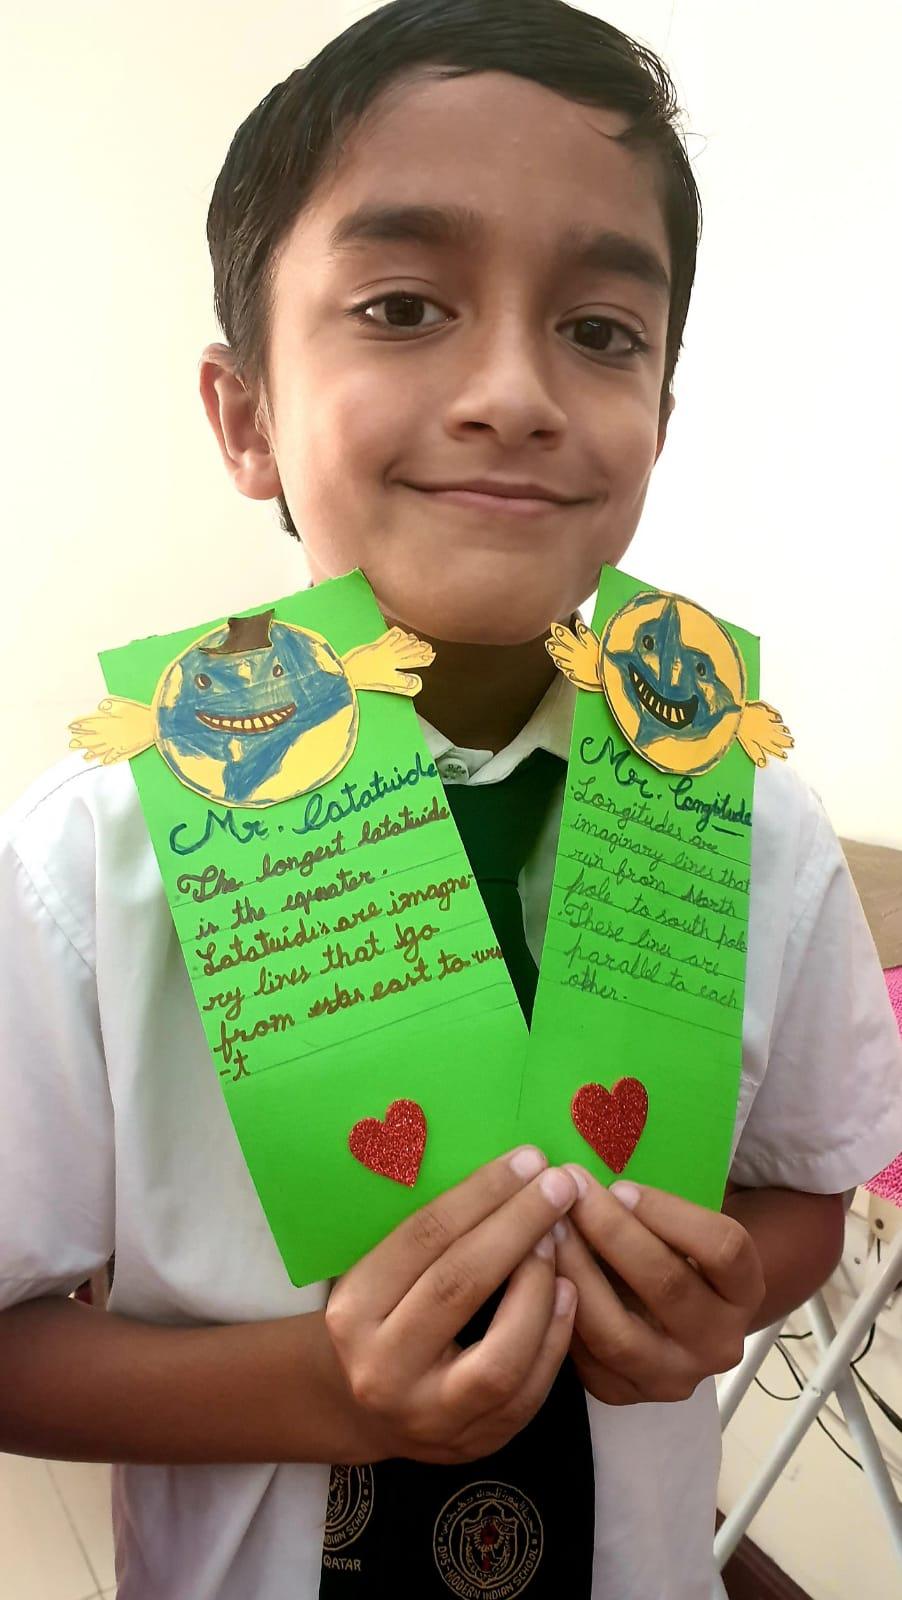 Mr. Latatuide
The longest latatuide
is the equater.
Latatuidis are imagne-
ry lines that go
from east to wes
-t
Mr. Longitude
Longitudes are
imaginary lines that
run from North
pole to south pole
These lines are
parallel to each
other.
INDIAN SCHOOL
QATAR
DPS-MODERN INDIAN SCHOOL